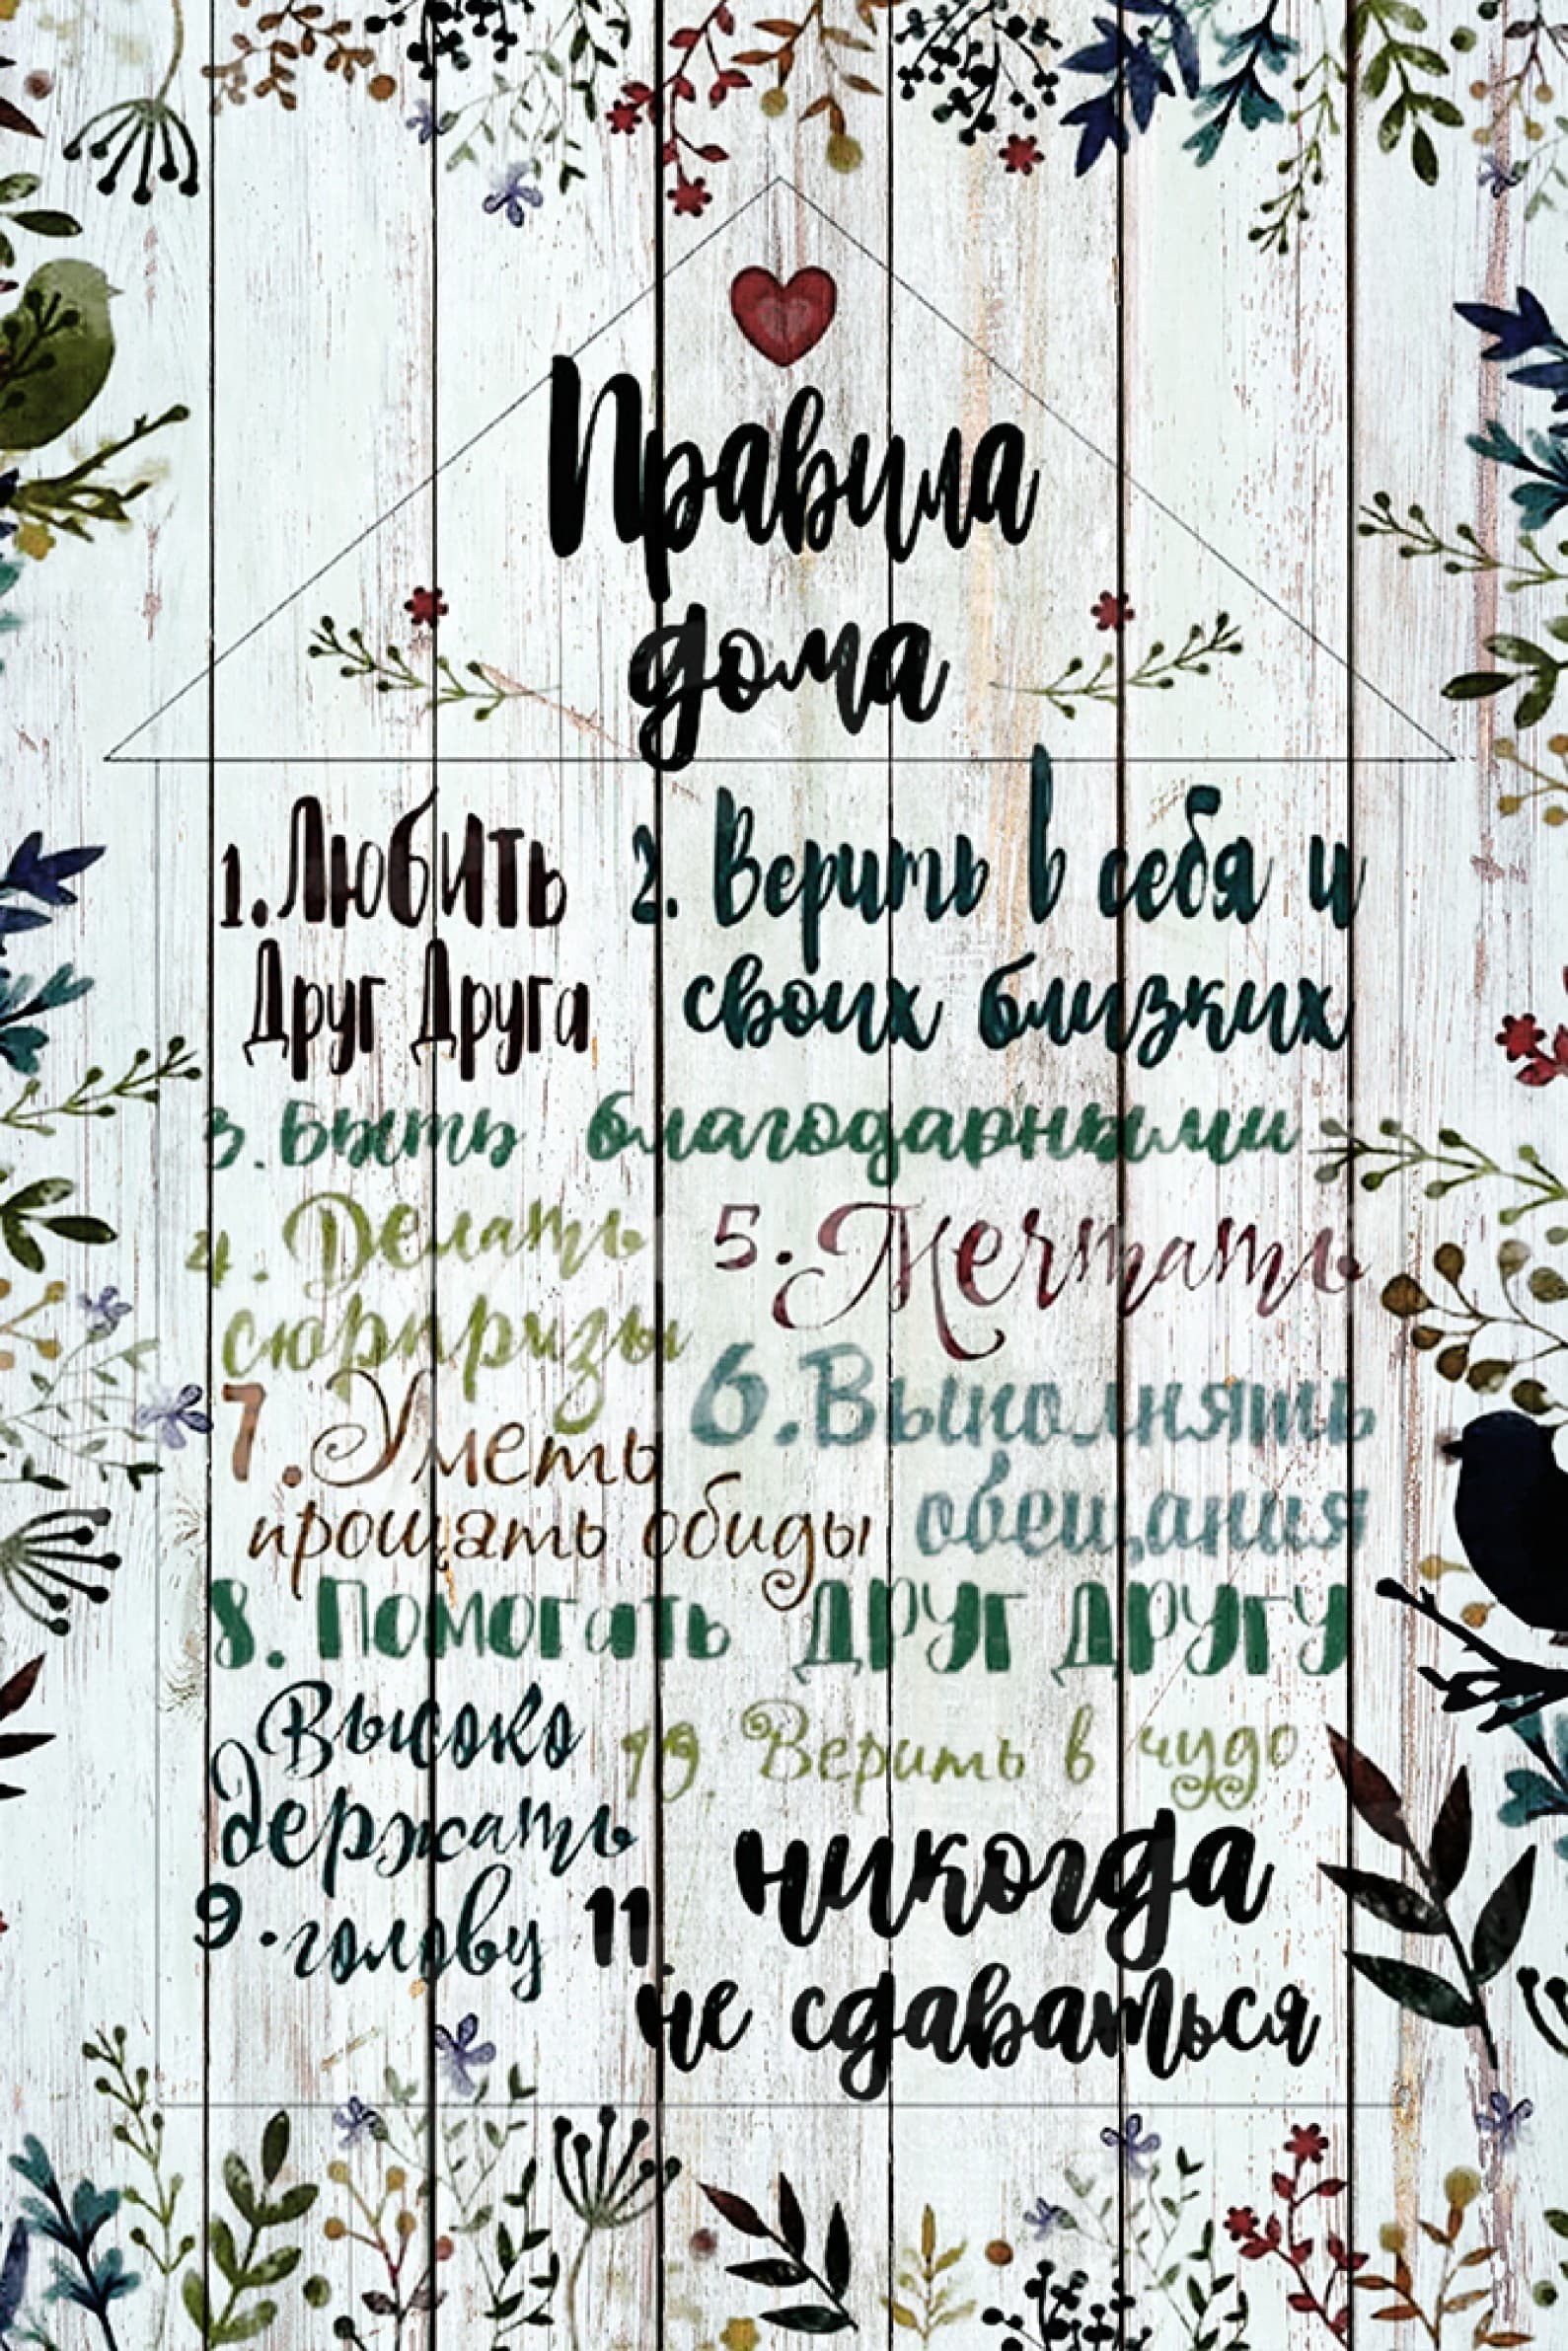 Правила
дома
1. Любить
Друг Друга
2. Верить в себя и
своих близких
3. Быть благодарными
4. Делать
сюрпризы
5. Мечтать
6. Выполнять
обещания
7. Уметь
прощать обиды
8. Помогать друг другу
Высоко
держать
9. голову
10. Верить в чудо
11. никогда
не сдаваться